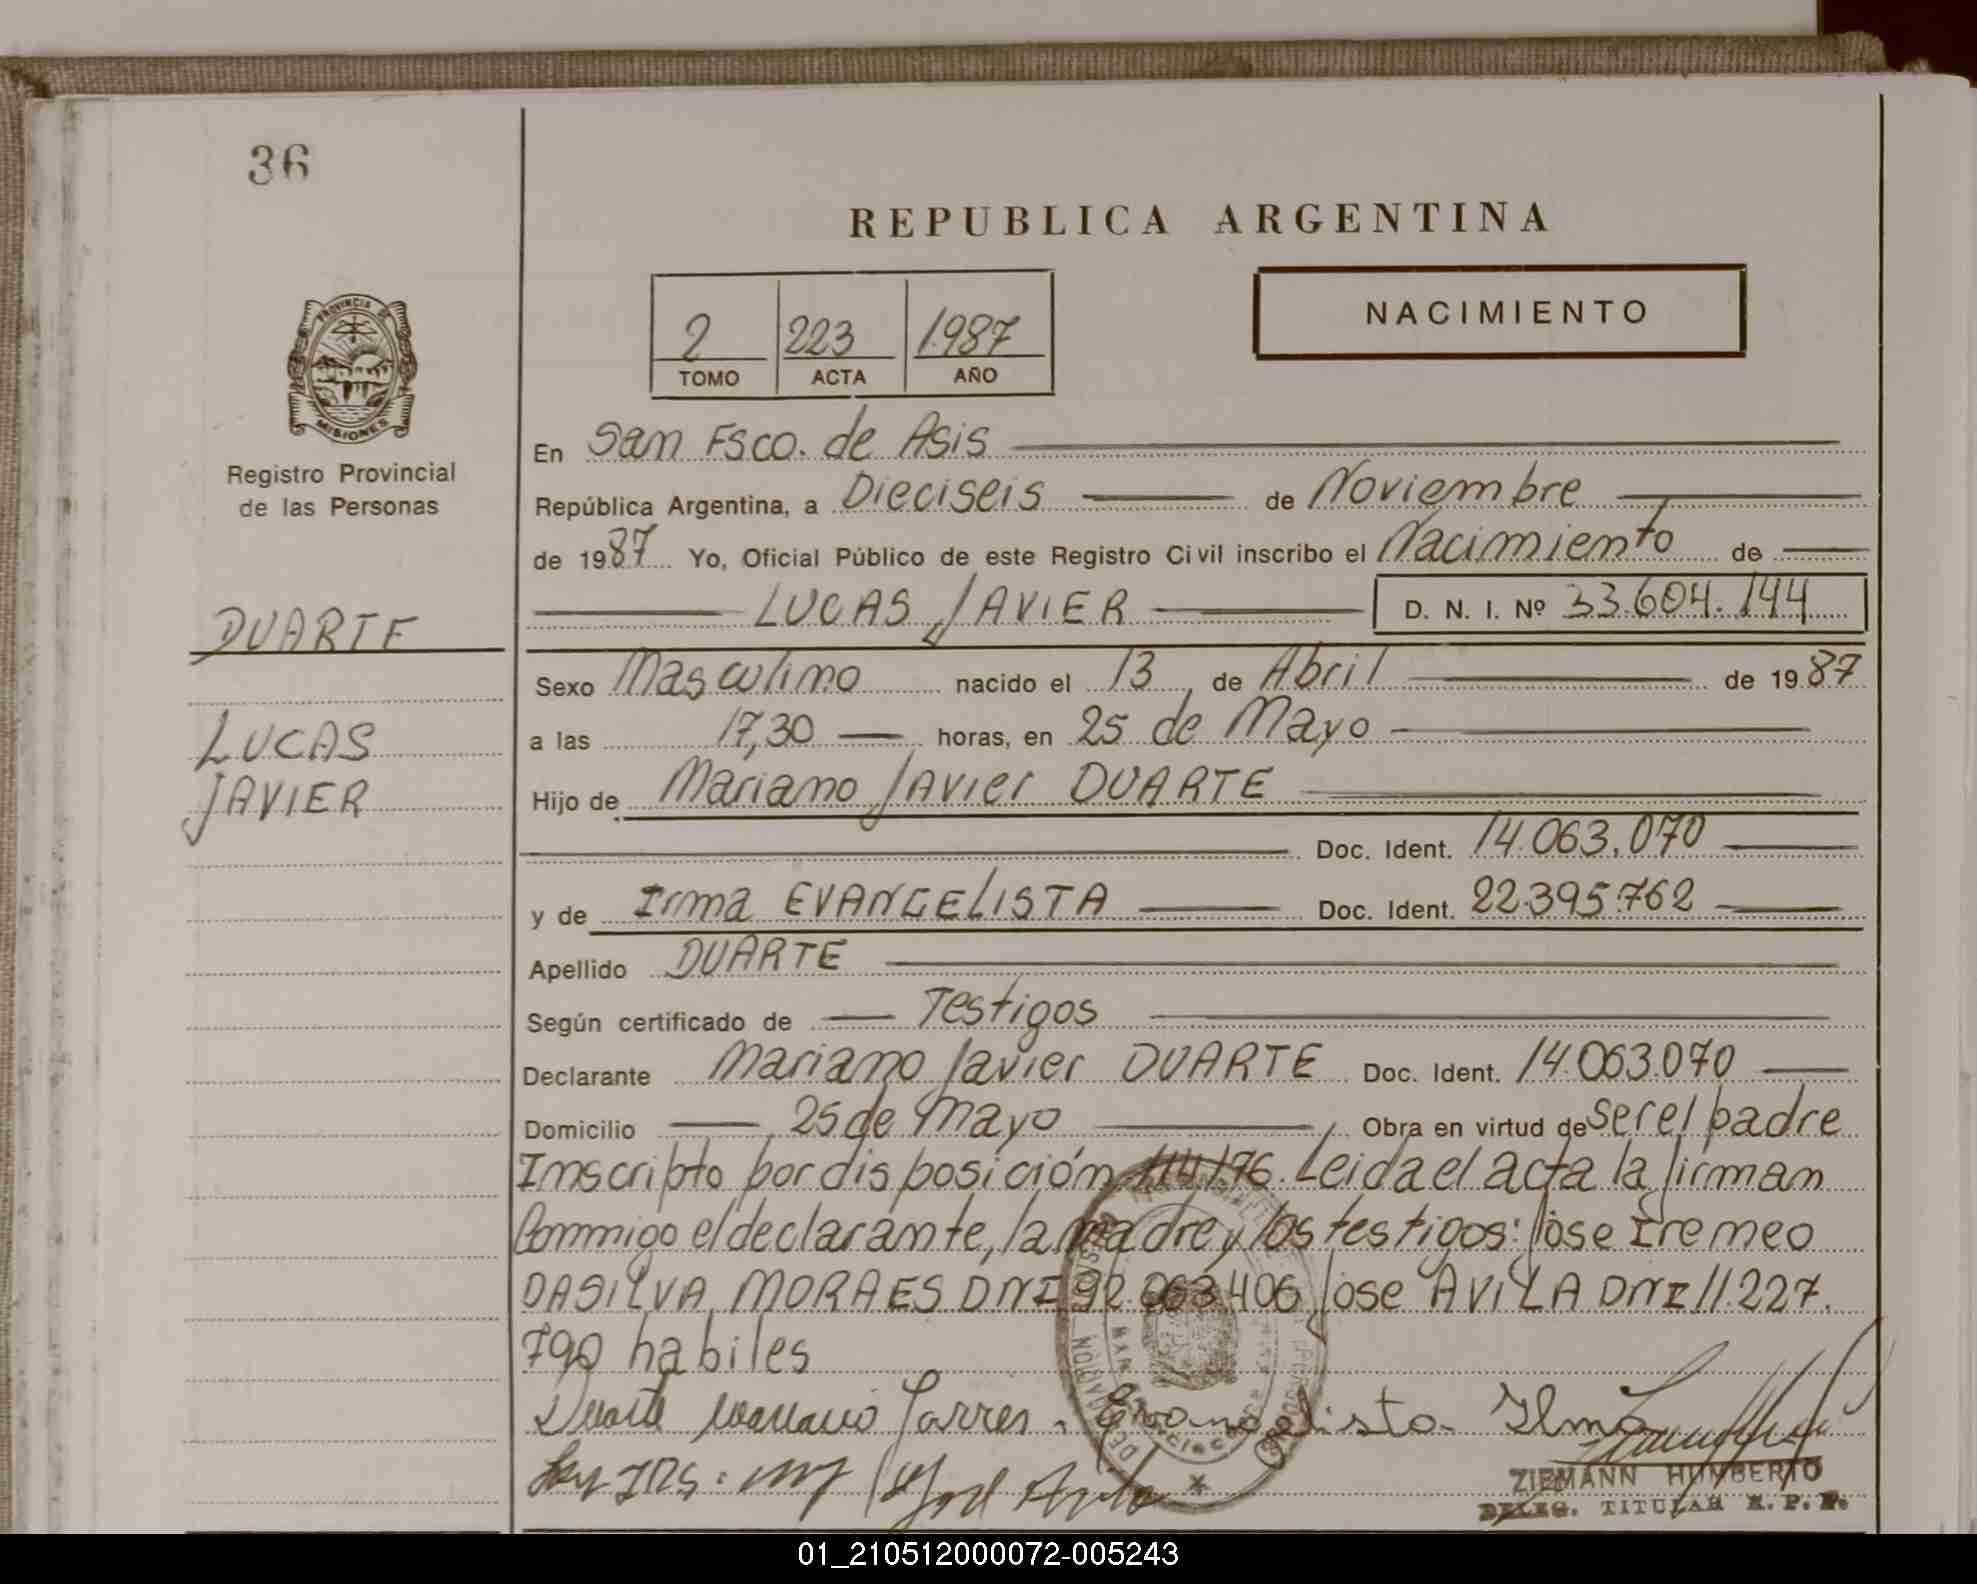 36
REPUBLICA ARGENTINA
NACIMIENTO
2 223 1.987
TOMO ACTA AÑO
PROVINCIA DE
MISIONES
Registro Provincial
de las Personas
DUARTE
LUCAS
JAVIER
En San Fsco. de Asis
República Argentina, a Dieciseis de Noviembre
de 1987 Yo, Oficial Público de este Registro Civil inscribo el Nacimiento de
LUCAS JAVIER D. N. I. Nº 33.604.144
Sexo Masculino nacido el 13 de Abril de 1987
a las 17,30 horas, en 25 de Mayo
Hijo de Mariano Javier DUARTE
Doc. Ident. 14.063.070
y de Irma EVANGELISTA Doc. Ident. 22.395.762
Apellido DUARTE
Según certificado de Testigos
Declarante Mariano Javier DUARTE Doc. Ident. 14.063.070
Domicilio 25 de Mayo Obra en virtud de ser el padre
Inscripto por disposición 114/76. Leida el acta la firman
Conmigo el declarante, la madre y los testigos: Jose Iremeo
DASILVA MORAES DNI 92.063.406 Jose AVILA DNI 11.227.
790 habiles
Duarte Mariano . Evangelista Ilma
ZIEMANN HUMBERTO
DELEG. TITULAR R. P. P.
01_210512000072-005243